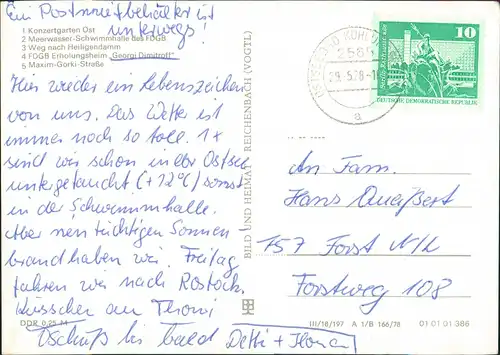 Ein Postmietbehälter ist
unterwegs!
1 Konzertgarten Ost
2 Meerwasser-Schwimmhalle des FDGB
3 Weg nach Heiligendamm
4 FDGB Erholungsheim „Georgi Dimitroff"
5 Maxim-Gorki-Straße
Hier wieder ein Lebenszeichen
von uns. Das Wetter ist
immer noch so toll. 1x
sind wir schon in der Ostsee
untergetaucht (+12°C) sonst
in der Schwimmhalle.
Aber nen tüchtigen Sonnen
brand haben wir. Freitag
fahren wir nach Rostock.
Küsschen an Thomi
Tschüß bis bald Detti + Ilona
DDR 0,25 M
BILD UND HEIMAT REICHENBACH (VOGTL)
2565
29.5.78
a
10
DEUTSCHE DEMOKRATISCHE REPUBLIK
An Fam.
Hans
757 Forst N/L
Forstweg 108
III/18/197 A 1/B 166/78 01 01 01 386